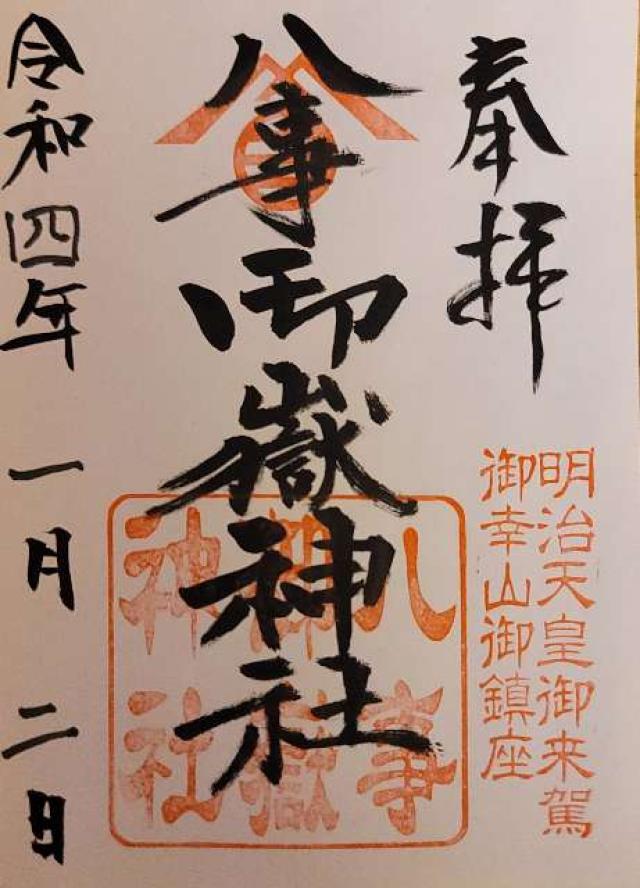 奉拝
明治天皇御来駕
御幸山御鎮座
八事御嶽神社
八事
御嶽
神社
令和四年一月二日